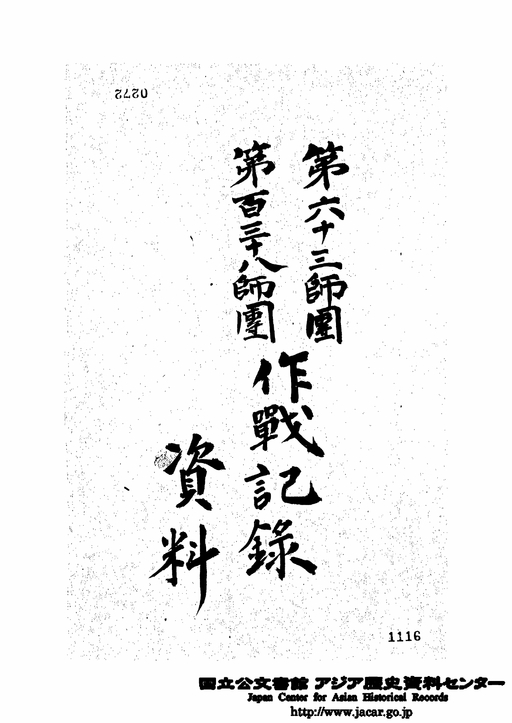 0272
第六十三師團
第百三十八師團
作戰記錄
資料
1116
国立公文書館 アジア歴史資料センター
Japan Center for Asian Historical Records
http://www.jacar.go.jp